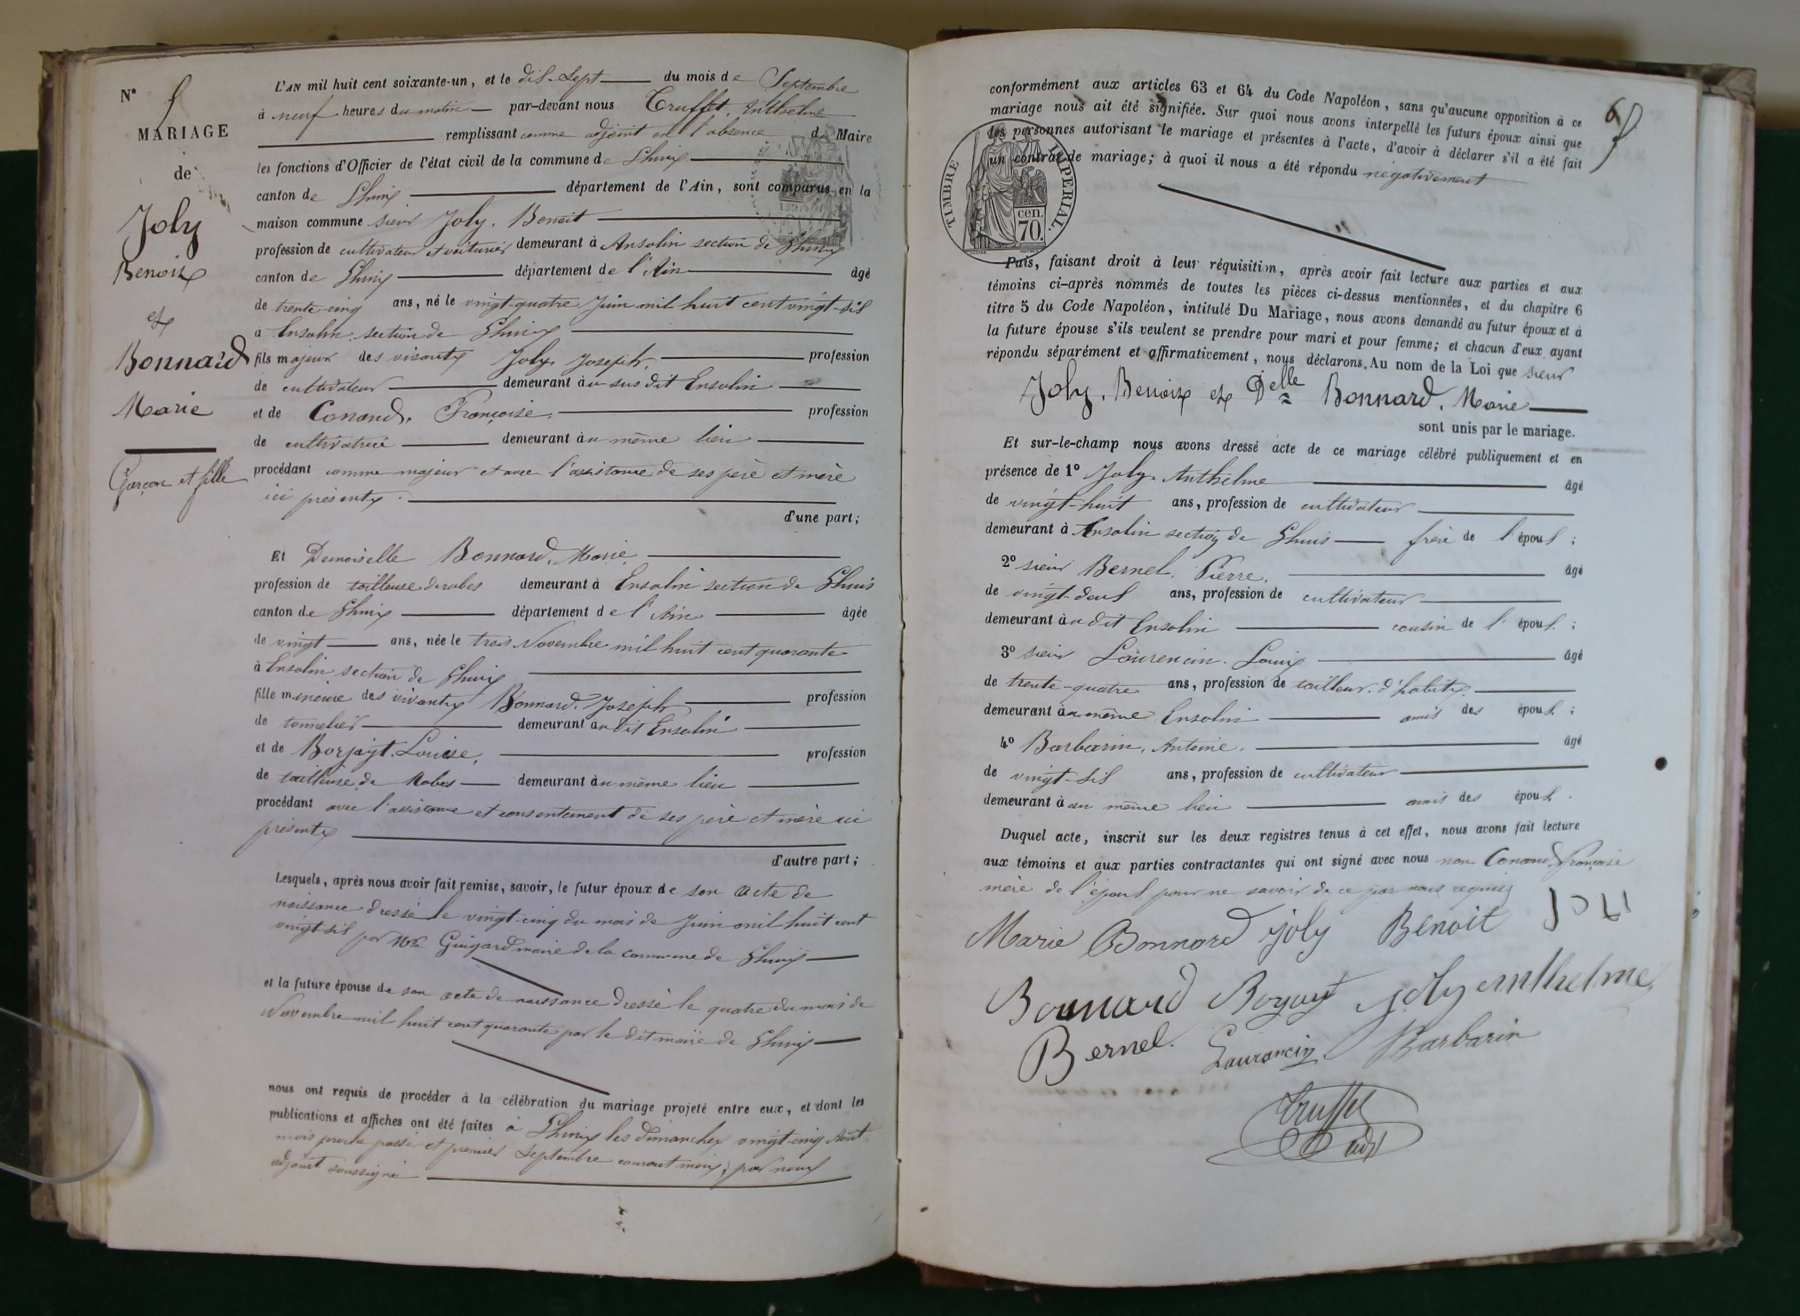 N°
MARIAGE
de
Joly
Benoit
et
Bonnard
Marie
Garçon et fille
L'AN mil huit cent soixante-un, et le dix-sept du mois de Septembre
à neuf heures du matin par-devant nous Truffet, Anthelme
remplissant comme adjoint en l'absence du Maire
les fonctions d'Officier de l'état civil de la commune de Lhuis
canton de Lhuis département de l'Ain, sont comparus en la
maison commune sieur Joly, Benoit
profession de cultivateur et voiturier demeurant à Ansolin section de Lhuis
canton de Lhuis département de l'Ain âgé
de trente-cinq ans, né le vingt-quatre Juin mil huit cent vingt-six
à Ensolin section de Lhuis
fils majeur des vivants Joly, Joseph, profession
de cultivateur demeurant au susdit Ensolin
et de Conand, Françoise, profession
de cultivatrice demeurant au même lieu
procédant comme majeur et avec l'assistance de ses père et mère
ici présents.
d'une part;
Et Demoiselle Bonnard, Marie,
profession de tailleuse de robes demeurant à Ensolin section de Lhuis
canton de Lhuis département de l'Ain âgée
de vingt ans, née le trois Novembre mil huit cent quarante
à Ensolin section de Lhuis
fille mineure des vivants Bonnard, Joseph profession
de tonnelier demeurant au dit Ensolin
et de Louise, profession
de tailleuse de Robes demeurant au même lieu
procédant avec l'assistance et consentement de ses père et mère ici
présents
d'autre part;
Lesquels, après nous avoir fait remise, savoir, le futur époux de son acte de
naissance dressé le vingt-cinq du mois de Juin mil huit cent
vingt-six par Mr Guigard maire de la commune de Lhuis
et la future épouse de son acte de naissance dressé le quatre du mois de
Novembre mil huit cent quarante par le dit maire de Lhuis
nous ont requis de procéder à la célébration du mariage projeté entre eux, et dont les
publications et affiches ont été faites à Lhuis les dimanches vingt-cinq Août
mois proche passé et premier Septembre courant mois, par nous
adjoint soussigné
6
conformément aux articles 63 et 64 du Code Napoléon, sans qu'aucune opposition à ce
mariage nous ait été signifiée. Sur quoi nous avons interpellé les futurs époux ainsi que
les personnes autorisant le mariage et présentes à l'acte, d'avoir à déclarer s'il a été fait
un contrat de mariage; à quoi il nous a été répondu négativement
TIMBRE IMPERIAL
cen.
70
Puis, faisant droit à leur réquisition, après avoir fait lecture aux parties et aux
témoins ci-après nommés de toutes les pièces ci-dessus mentionnées, et du chapitre 6
titre 5 du Code Napoléon, intitulé Du Mariage, nous avons demandé au futur époux et à
la future épouse s'ils veulent se prendre pour mari et pour femme; et chacun d'eux ayant
répondu séparément et affirmativement, nous déclarons, Au nom de la Loi que sieur
Joly, Benoit et Delle Bonnard, Marie
sont unis par le mariage.
Et sur-le-champ nous avons dressé acte de ce mariage célébré publiquement et en
présence de 1° Joly, Anthelme âgé
de vingt-huit ans, profession de cultivateur
demeurant à Ansolin section de Lhuis frère de l'époux;
2° sieur Bernel, Pierre, âgé
de vingt-deux ans, profession de cultivateur
demeurant au dit Ensolin cousin de l'époux;
3° sieur Laurencin, Louis âgé
de trente-quatre ans, profession de tailleur d'habits,
demeurant au même Ensolin amis des époux;
4° Barbarin, Antoine, âgé
de vingt-six ans, profession de cultivateur
demeurant à au même lieu amis des époux.
Duquel acte, inscrit sur les deux registres tenus à cet effet, nous avons fait lecture
aux témoins et aux parties contractantes qui ont signé avec nous non Conand, Françoise
mère de l'époux pour ne savoir de ce par nous requis
Marie Bonnard joly Benoit
Bonnard joly anthelme
Bernel. Laurancin Barbarin
Truffet
adjt